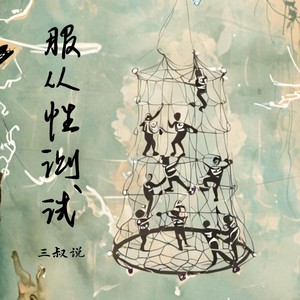 服从性测试
三叔说